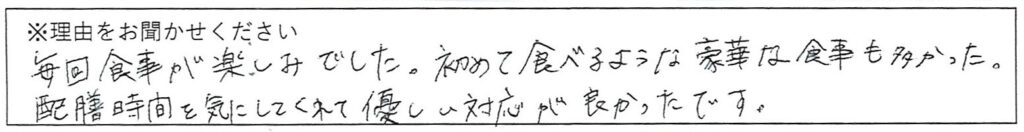 ※理由をお聞かせください
毎回食事が楽しみでした。初めて食べるような豪華な食事も多かった。
配膳時間を気にしてくれて優しい対応が良かったです。